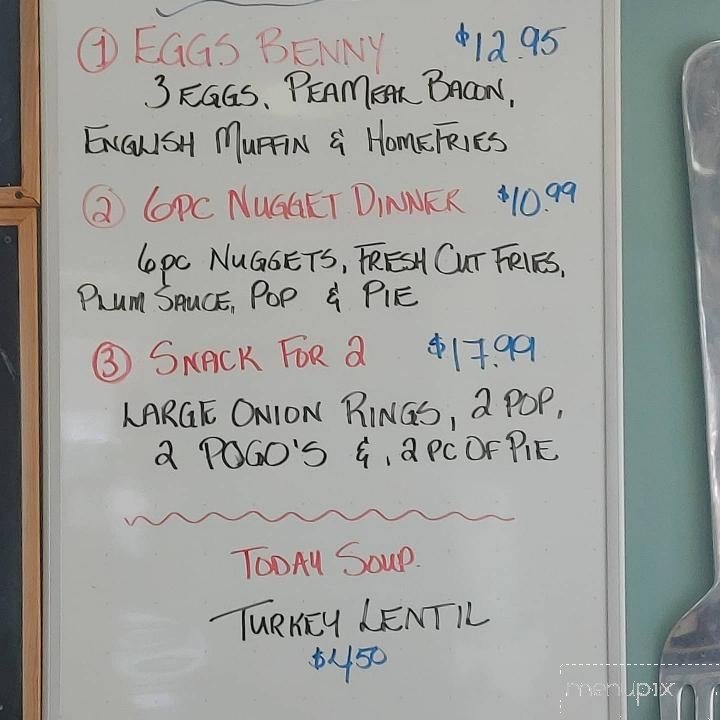 1 EGGS BENNY $12.95
3 EGGS, PEAMEAL BACON,
ENGLISH MUFFIN & HOMEFRIES
2 6PC NUGGET DINNER $10.99
6pc NUGGETS, FRESH CUT FRIES,
PLUM SAUCE, POP & PIE
3 SNACK FOR 2 $17.99
LARGE ONION RINGS, 2 POP,
2 POGO'S &, 2 PC OF PIE
TODAY SOUP.
TURKEY LENTIL
$4.50
menupix